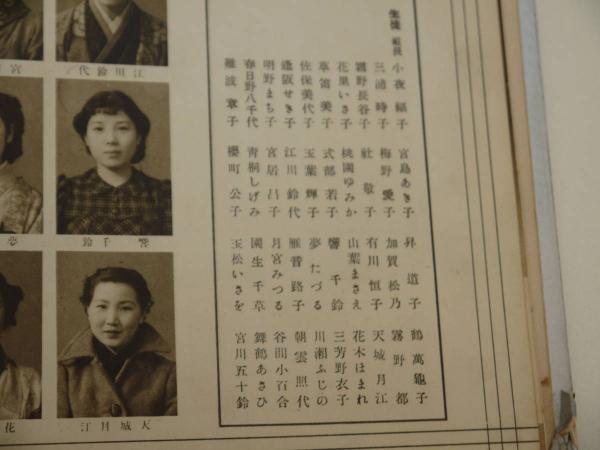 生徒
組長
小夜福子
三浦時子
霧野長谷子
花里いさ子
草笛美子
佐保美代子
逢阪せき子
明野まち子
春日野八千代
難波章子
宮島あき子
梅野愛子
社敬子
桃園ゆみか
式部若子
玉葉輝子
江川鈴代
宮居昌子
青桐しげみ
櫻町公子
昇道子
加賀松乃
有川恒子
山葉まさえ
響千鈴
夢たづる
雁音路子
月宮みつる
園生千草
玉松いさを
鶴萬亀子
霧野都
天城月江
花木ほまれ
三芳野衣子
川瀬ふじの
朝雲照代
谷間小百合
舞鶴あさひ
宮川五十鈴
代鈴川江
宮
鈴千響
夢
江月城天
花